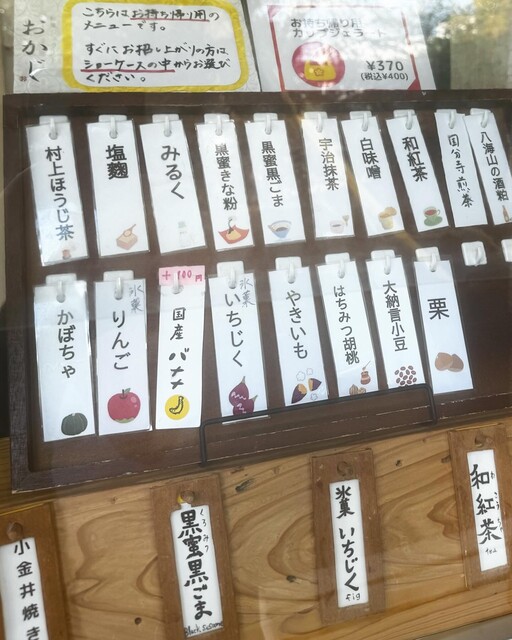 こちらはお持ち帰り用の
メニューです。
すぐにお召し上がりの方は
ショーケースの中からお選び
ください。
お持ち帰り用
カップジェラート
¥370
(税込¥400)
八海山の酒粕
国分寺煎茶
和紅茶
白味噌
宇治抹茶
黒蜜黒ごま
黒蜜きな粉
みるく
塩麹
村上ほうじ茶
栗
大納言小豆
はちみつ胡桃
やきいも
氷菓
いちじく
+100円
国産バナナ
氷菓
りんご
かぼちゃ
和紅茶
tea
氷菓いちじく
fig
くろみつ
黒蜜黒ごま
Black Sesame
小金井焼き